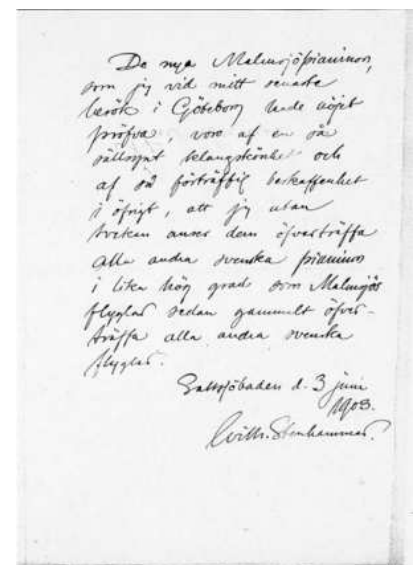 De nya Malmsjöpianinon,
som jag vid mitt senaste
besök i Göteborg hade nöjet
pröfva, voro af en så
sällsynt klangskönhet och
af så förträfflig beskaffenhet
i öfrigt, att jag utan
tvekan anser dem öfverträffa
alla andra svenska pianinon
i lika hög grad som Malmsjös
flyglar sedan gammalt öfver-
träffa alla andra svenska
flyglar.
Saltsjöbaden d. 3 juni
1903.
Wilh. Stenhammar.